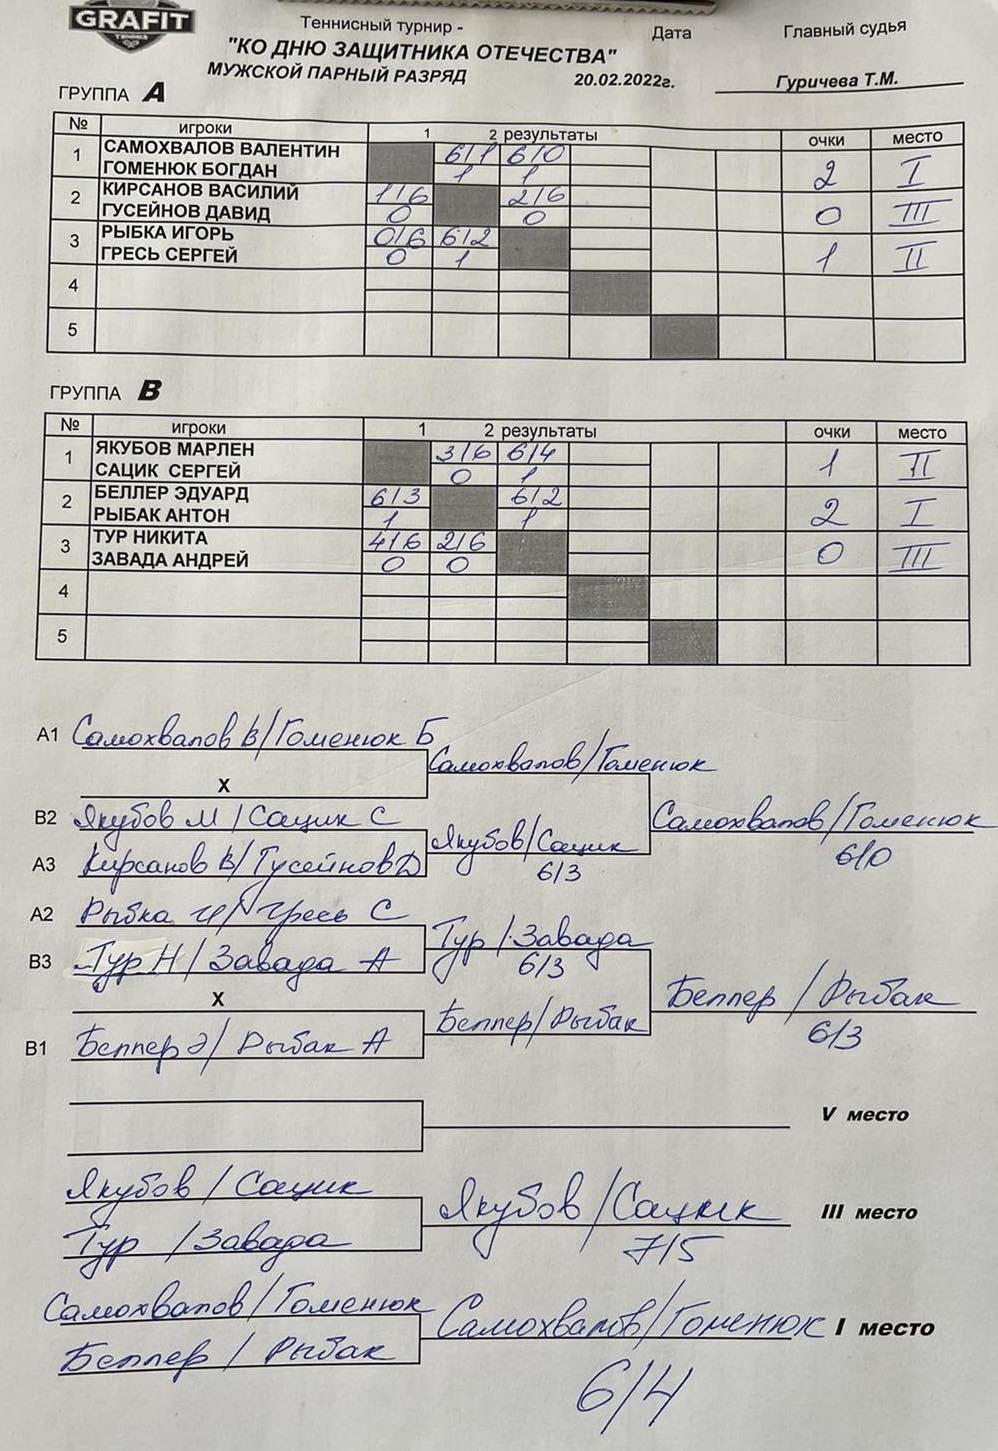 GRAFIT
TENNIS
Теннисный турнир -
Дата
Главный судья
"КО ДНЮ ЗАЩИТНИКА ОТЕЧЕСТВА"
МУЖСКОЙ ПАРНЫЙ РАЗРЯД
20.02.2022г.
Гуричева Т.М.
ГРУППА А
№ игроки 1 2 результаты очки место
1 САМОХВАЛОВ ВАЛЕНТИН 6/1 6/0 2 I
ГОМЕНЮК БОГДАН 1 1
2 КИРСАНОВ ВАСИЛИЙ 1/6 2/6 0 III
ГУСЕЙНОВ ДАВИД 0 0
3 РЫБКА ИГОРЬ 0/6 6/2 1 II
ГРЕСЬ СЕРГЕЙ 0 1
4
5
ГРУППА В
№ игроки 1 2 результаты очки место
1 ЯКУБОВ МАРЛЕН 3/6 6/4 1 II
САЦИК СЕРГЕЙ 0 1
2 БЕЛЛЕР ЭДУАРД 6/3 6/2 2 I
РЫБАК АНТОН 1 1
3 ТУР НИКИТА 4/6 2/6 0 III
ЗАВАДА АНДРЕЙ 0 0
4
5
А1 Самохвалов В/Гоменюк Б
Самохвалов/Гоменюк
Х
В2 Якубов М/Сацик С
Самохвалов/Гоменюк
6/0
Якубов/Сацик
6/3
А3 Кирсанов В/Гусейнов Д
А2 Рыбка И/Гресь С
Тур/Завада
6/3
В3 Тур Н/Завада А
Беллер/Рыбак
6/3
Х
Беллер/Рыбак
В1 Беллер Э/Рыбак А
V место
Якубов/Сацик
Якубов/Сацик III место
7/5
Тур/Завада
Самохвалов/Гоменюк
Самохвалов/Гоменюк I место
Беллер/Рыбак
6/4